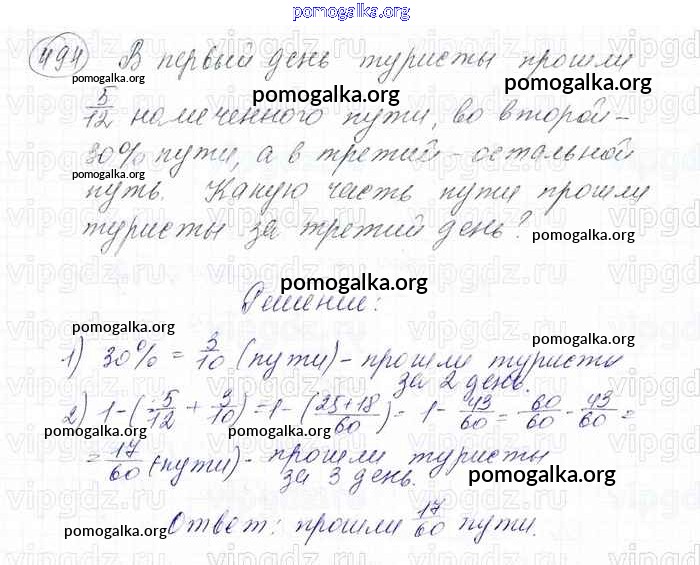 pomogalka.org
494 В первый день туристы прошли
pomogalka.org pomogalka.org pomogalka.org
5/12 намеченного пути, во второй -
30% пути, а в третий - остальной
pomogalka.org pomogalka.org
путь. Какую часть пути прошли
туристы за третий день?
pomogalka.org
pomogalka.org
Решение:
pomogalka.org
1) 30% = 3/10 (пути) - прошли туристы
за 2 день.
pomogalka.org
2) 1-(5/12 + 3/10) = 1-(25+18/60) = 1 - 43/60 = 60/60 - 43/60 =
pomogalka.org pomogalka.org
= 17/60 (пути) - прошли туристы
за 3 день.
pomogalka.org
pomogalka.org
Ответ: прошли 17/60 пути.